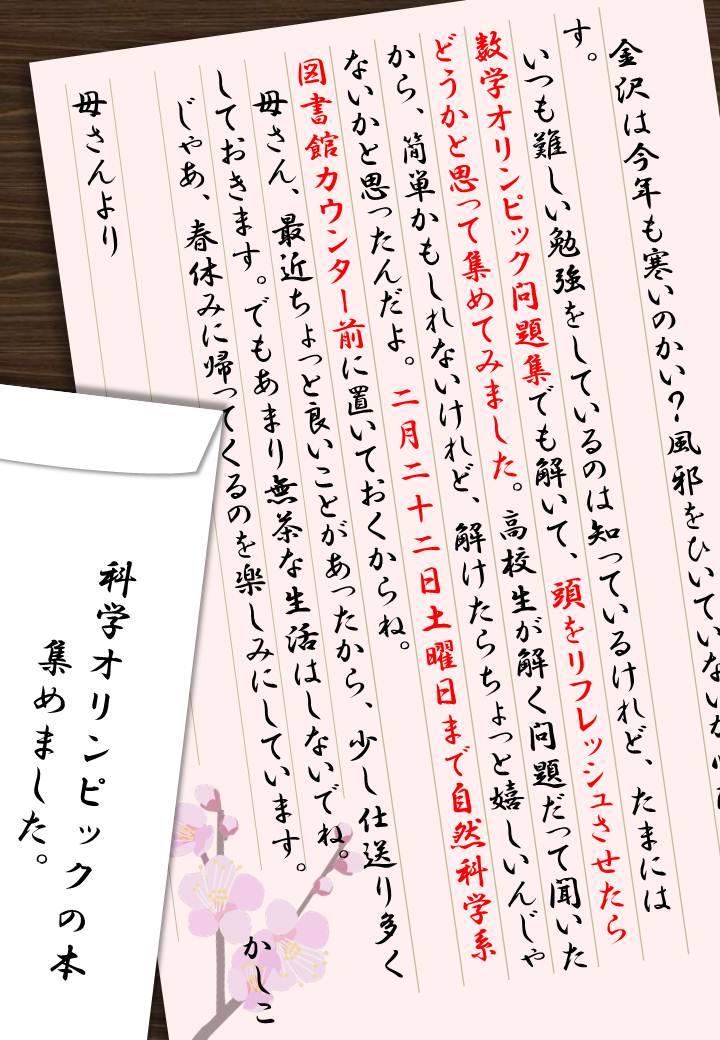 金沢は今年も寒いのかい？風邪をひいていないか
す。
いつも難しい勉強をしているのは知っているけれど、たまには
数学オリンピック問題集でも解いて、頭をリフレッシュさせたら
どうかと思って集めてみました。高校生が解く問題だって聞いた
から、簡単かもしれないけれど、解けたらちょっと嬉しいんじゃ
ないかと思ったんだよ。二月二十二日土曜日まで自然科学系
図書館カウンター前に置いておくからね。
母さん、最近ちょっと良いことがあったから、少し仕送り多く
しておきます。でもあまり無茶な生活はしないでね。
じゃあ、春休みに帰ってくるのを楽しみにしています。
かしこ
母さんより
科学オリンピックの本
集めました。